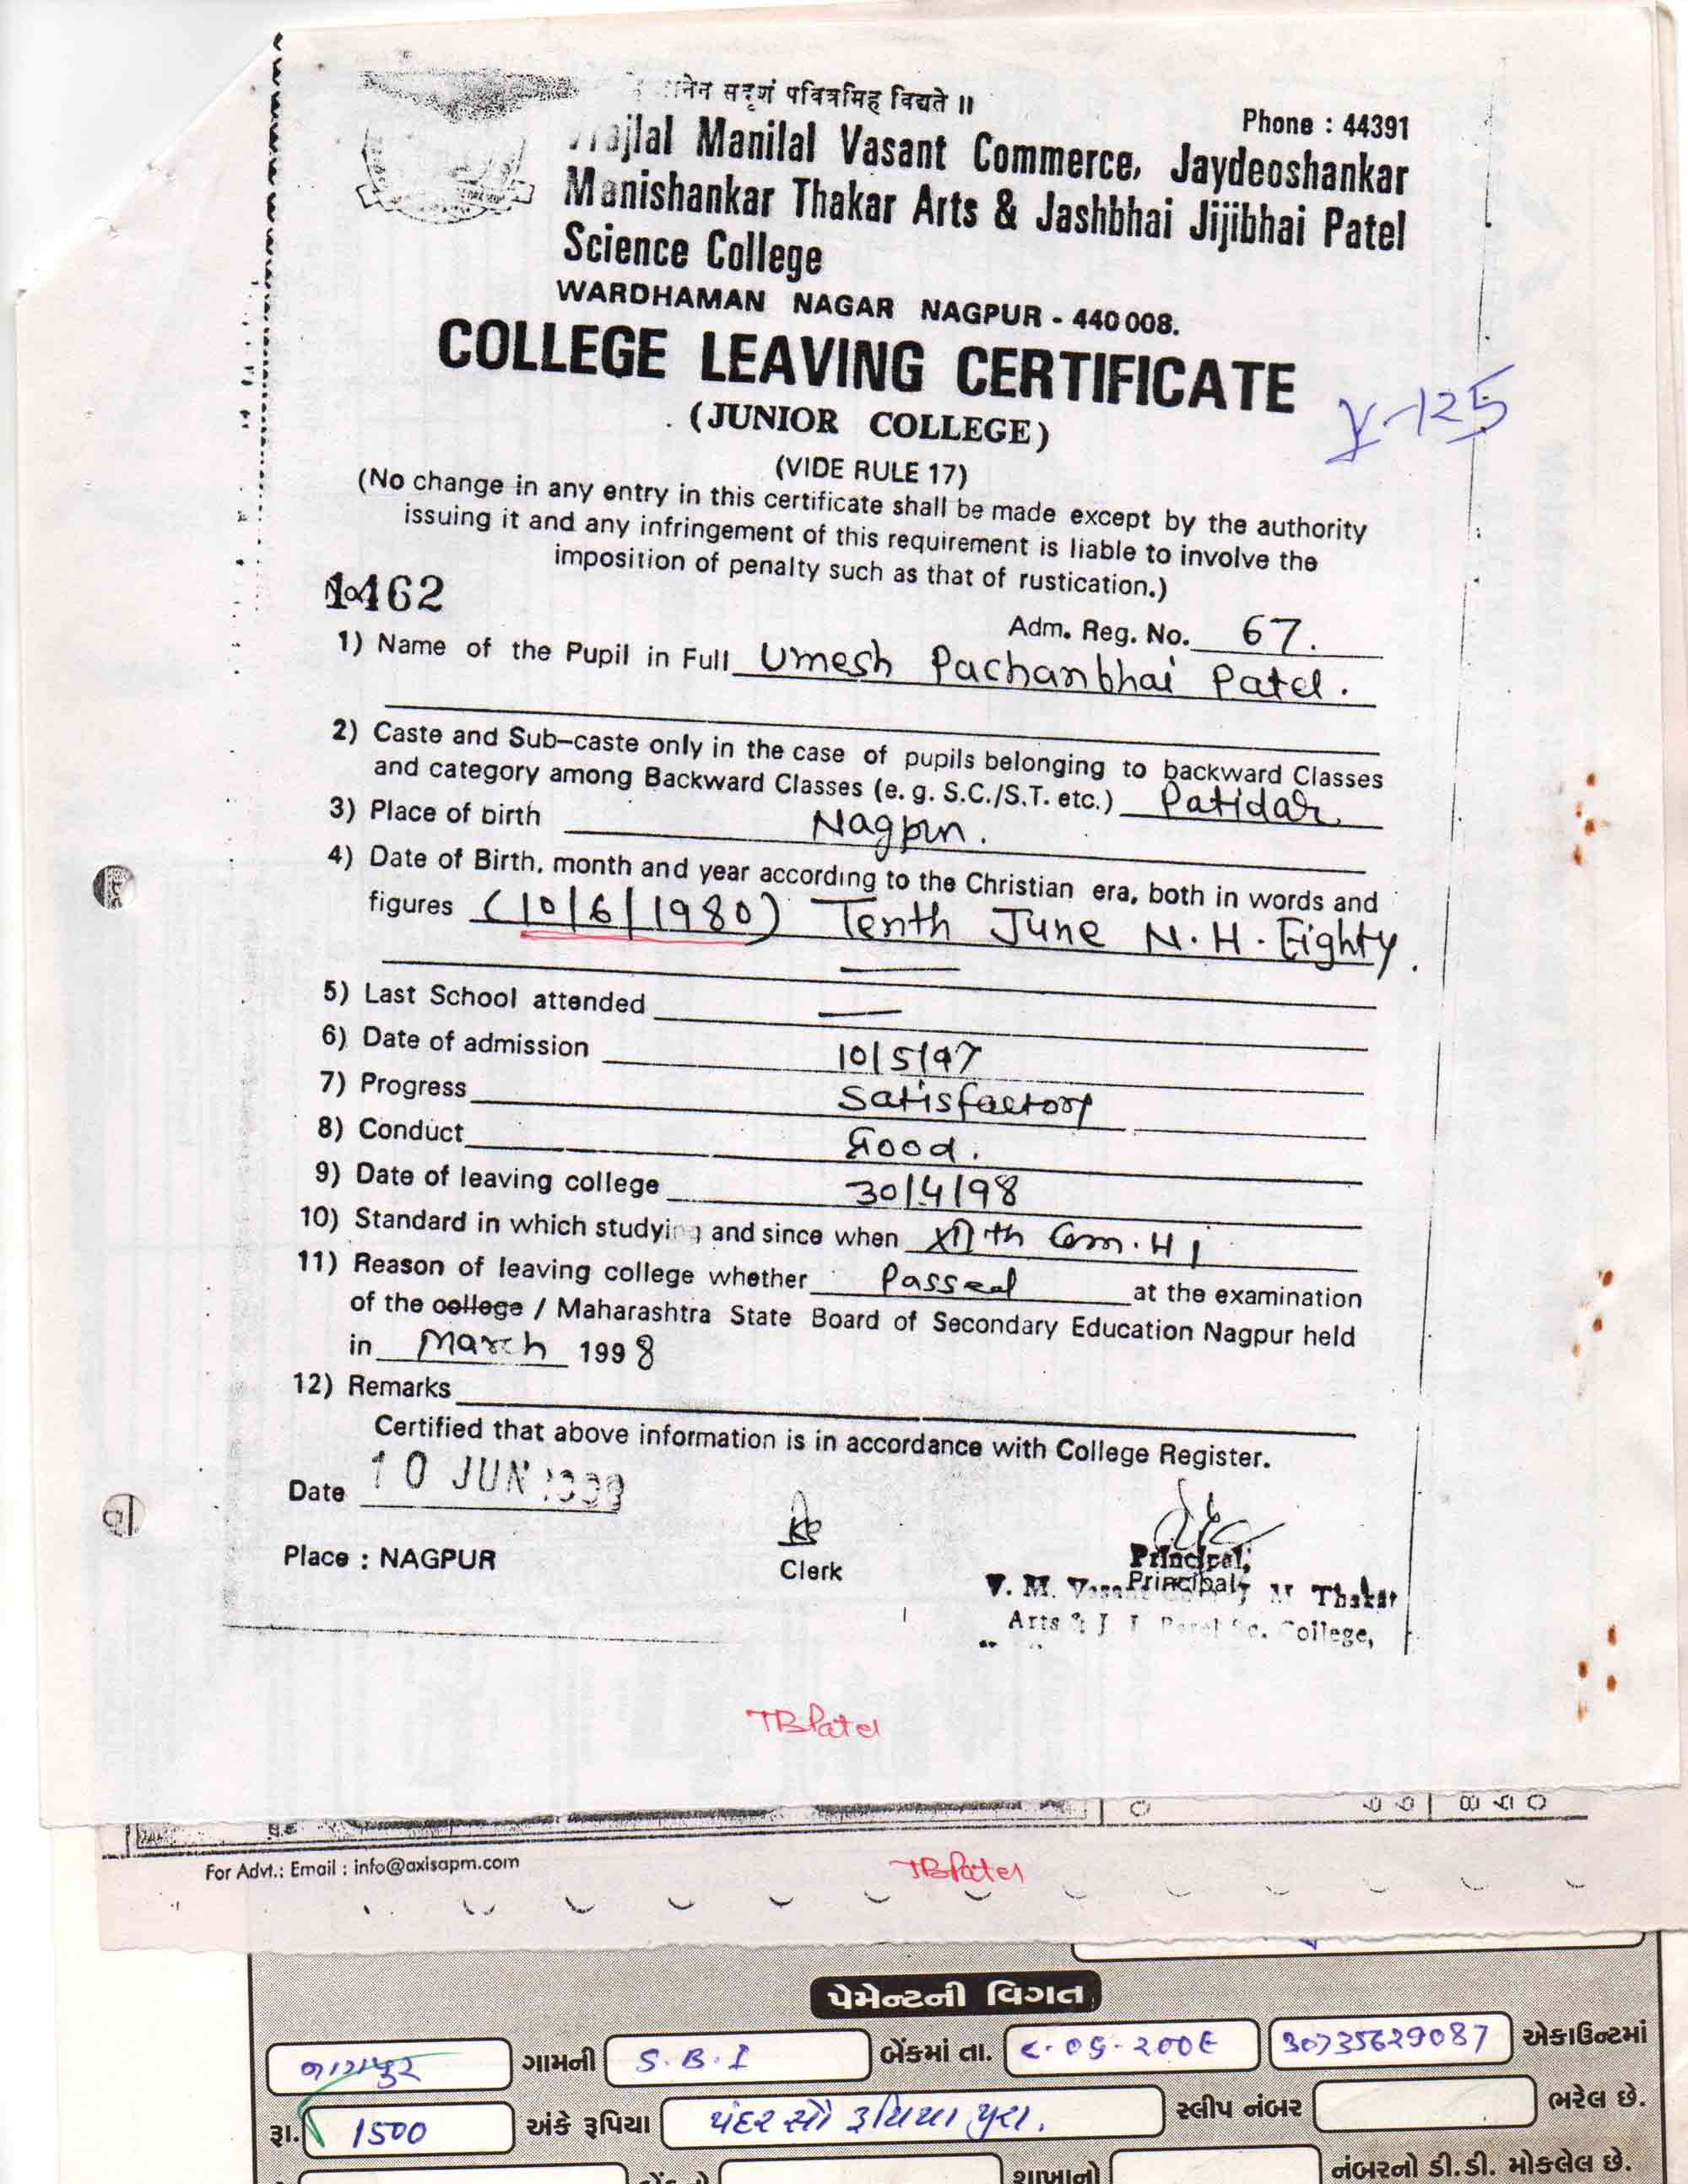 सदृशं पवित्रमिह विद्यते ॥
Phone : 44391
Manilal Vasant Commerce, Jaydeoshankar
Manishankar Thakar Arts & Jashbhai Jijibhai Patel
Science College
WARDHAMAN NAGAR NAGPUR - 440 008.
COLLEGE LEAVING CERTIFICATE
(JUNIOR COLLEGE)
Y-125
(VIDE RULE 17)
(No change in any entry in this certificate shall be made except by the authority
issuing it and any infringement of this requirement is liable to involve the
imposition of penalty such as that of rustication.)
Adm. Reg. No. 67.
1) Name of the Pupil in Full Umesh Pachanbhai Patel.
2) Caste and Sub-caste only in the case of pupils belonging to backward Classes
and category among Backward Classes (e. g. S.C./S.T. etc.) Patidar
3) Place of birth Nagpur.
4) Date of Birth, month and year according to the Christian era, both in words and
figures (10/6/1980) Tenth June N.H. Eighty.
5) Last School attended —
6) Date of admission 10/5/97
7) Progress Satisfactory
8) Conduct Good.
9) Date of leaving college 30/4/98
10) Standard in which studying and since when XIIth Com.
11) Reason of leaving college whether Passed at the examination
of the college / Maharashtra State Board of Secondary Education Nagpur held
in March 1998
12) Remarks
Certified that above information is in accordance with College Register.
Date 10 JUN
Place : NAGPUR
Clerk
Principal,
Principal
V. M. Thakar
Arts & J. College,
TBPatel
For Advt.: Email : info@axisapm.com
TBPatel
પેમેન્ટની વિગત
નાગપુર ગામની S.B.I બેંકમાં તા. ૮-૦૬-૨૦૦૯ 30735629087 એકાઉન્ટમાં
રૂા. 1500 અંકે રૂપિયા પંદર સો રૂપિયા પુરા. સ્લીપ નંબર ભરેલ છે.
શાખાનો નંબરનો ડી.ડી. મોકલેલ છે.